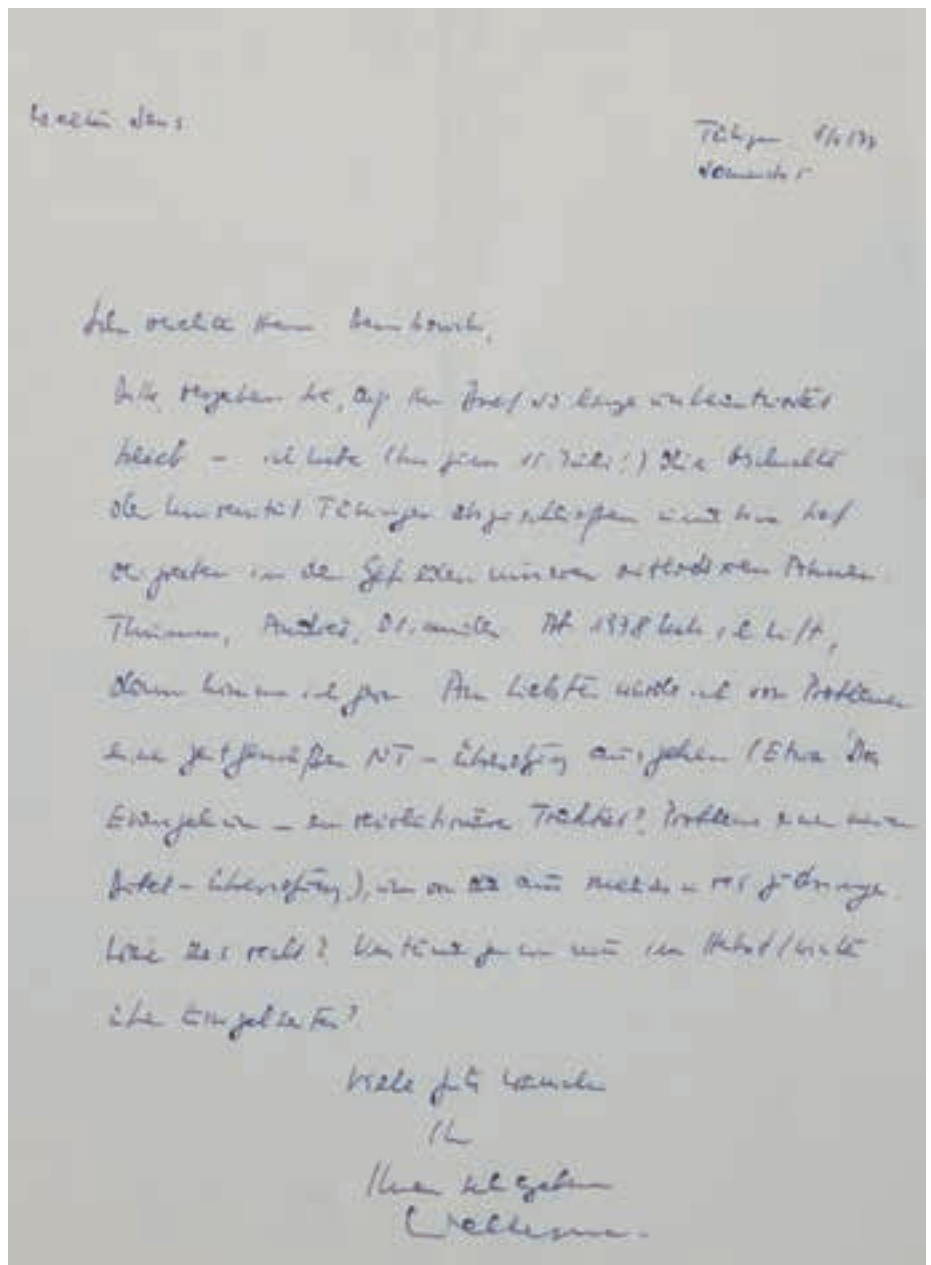 Walter Jens
Tübingen
Sonnenstr. 5
Sehr verehrter Herr
bitte vergeben Sie, daß Ihr Brief so lange unbeantwortet
blieb – ich habe (bis zum 15. Juli!) die Geschichte
der Universität Tübingen abgeschlossen und war
in den Gefilden unserer orthodoxen
Thumm, Andreä, Osiander. Ab 1978 habe ich Luft,
dann komme ich gern. Am liebsten würde ich von Problemen
einer zeitgemäßen NT-Übersetzung ausgehen (Etwa: Das
Evangelium – ein revolutionärer Traktat? Probleme einer neuen
Bibel-Übersetzung), um von da aus
Wäre das recht? Verständigen wir uns im Herbst/Winter
über Einzelheiten?
Viele gute Wünsche
Ihr
Ihnen sehr ergebener
Walter Jens.